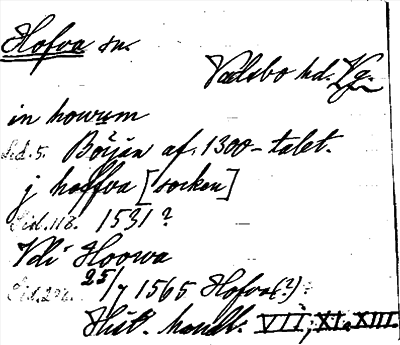 Hofva sn.
Valsbo hd. Vg.
in howum
Sid. 5. Början af 1300-talet.
j hoffva [socken]
Sid. 118. 1531?
Vdi Hoowa
25/7 1565 Hofva(?)
Hist. handl. VII, XI. XIII.